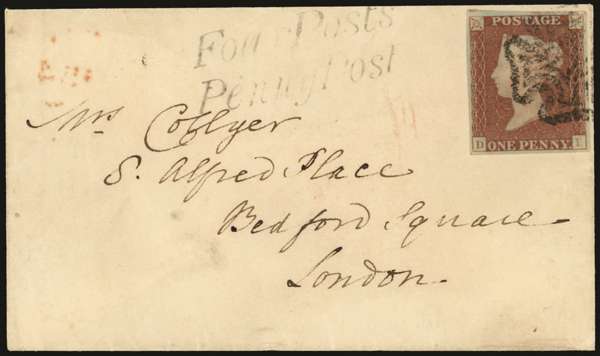 Four Posts
Penny Post
POSTAGE
ONE PENNY
D
Mrs Collyer
8. Alfred Place
Bedford Square
London.